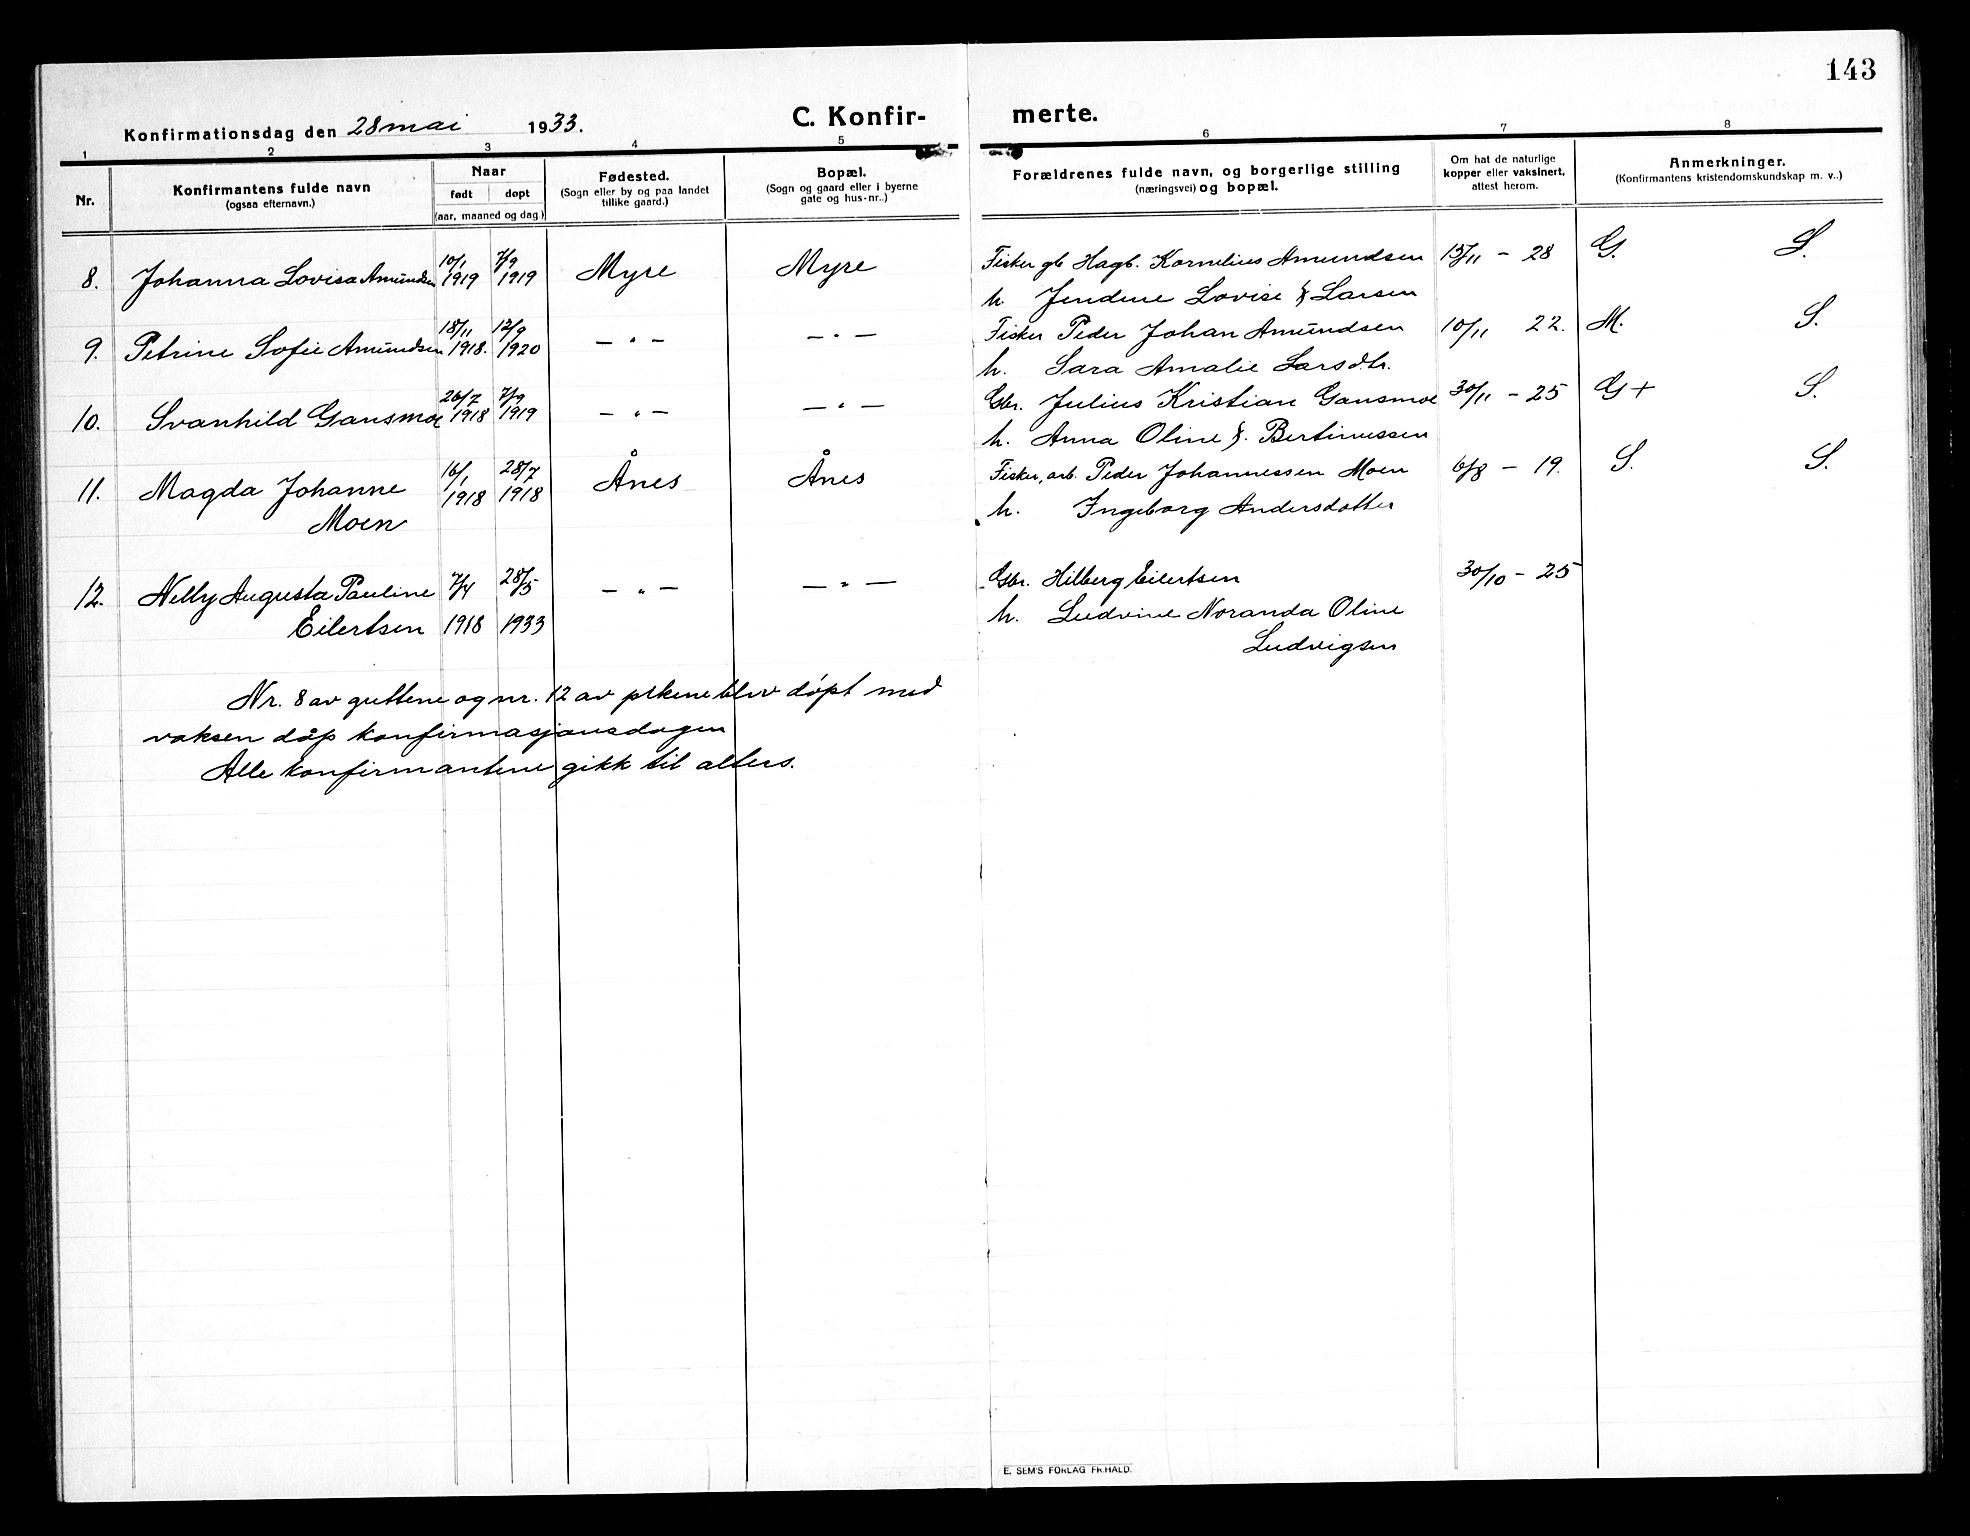 143
Konfirmationsdag den 28 mai 1933. C. Konfir- merte.
1 2 3 4 5 6 7 8
Nr. Konfirmantens fulde navn (ogsaa efternavn.) Naar født døpt (aar, maaned og dag) Fødested. (Sogn eller by og paa landet tillike gaard.) Bopæl. (Sogn og gaard eller i byerne gate og hus-nr..) Forældrenes fulde navn, og borgerlige stilling (næringsvei) og bopæl. Om hat de naturlige kopper eller vaksinert, attest herom. Anmerkninger. (Konfirmantens kristendomskundskap m. v..)
8. Johanna Lovisa Amundsen 10/1 1919 7/9 1919 Myre Myre Fisker gb Hagb. Kornelius Amundsen 15/11 - 28 G. S.
h. Jendine Lovise f. Larsen
9. Petrine Sofie Amundsen 18/11 1918. 12/9 1920 — " — — " — Fisker Peder Johan Amundsen 10/11 22. M. S.
h. Sara Amalie Larsdtr.
10. Svanhild Gausmoe 26/7 1918 7/9 1919 — " — — " — Gbr. Julius Kristian Gausmoe 30/11 - 25 G+ S.
h. Anna Oline f. Bertinussen
11. Magda Johanne 16/1 1918 28/7 1918 Ånes Ånes Fisker, arb. Peder Johannessen Moen 6/8 - 19. S. S.
Moen h. Ingeborg Andersdotter
12. Nelly Augusta Pauline 7/4 28/5 — " — — " — Gbr. Hilberg Eilertsen 30/10 - 25
Eilertsen 1918 1933 h. Ludvine Noranda Oline
Ludvigsen
Nr. 8 av guttene og nr. 12 av pikene blev døpt med
voksen dåp konfirmasjonsdagen
Alle konfirmantene gikk til alters.
E. SEM'S FORLAG FR.HALD.